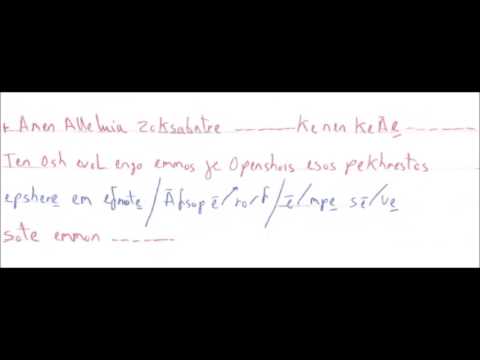 + Amen Alleluia Zoksabatre ------- Ke nen Ke Āe -------
Ten Osh evol engo emmos je Openshois esos pekhrestos
epshere em efnote / Āfsop ē/ro/f / ē/mpe sē/ve
sote emmon -------